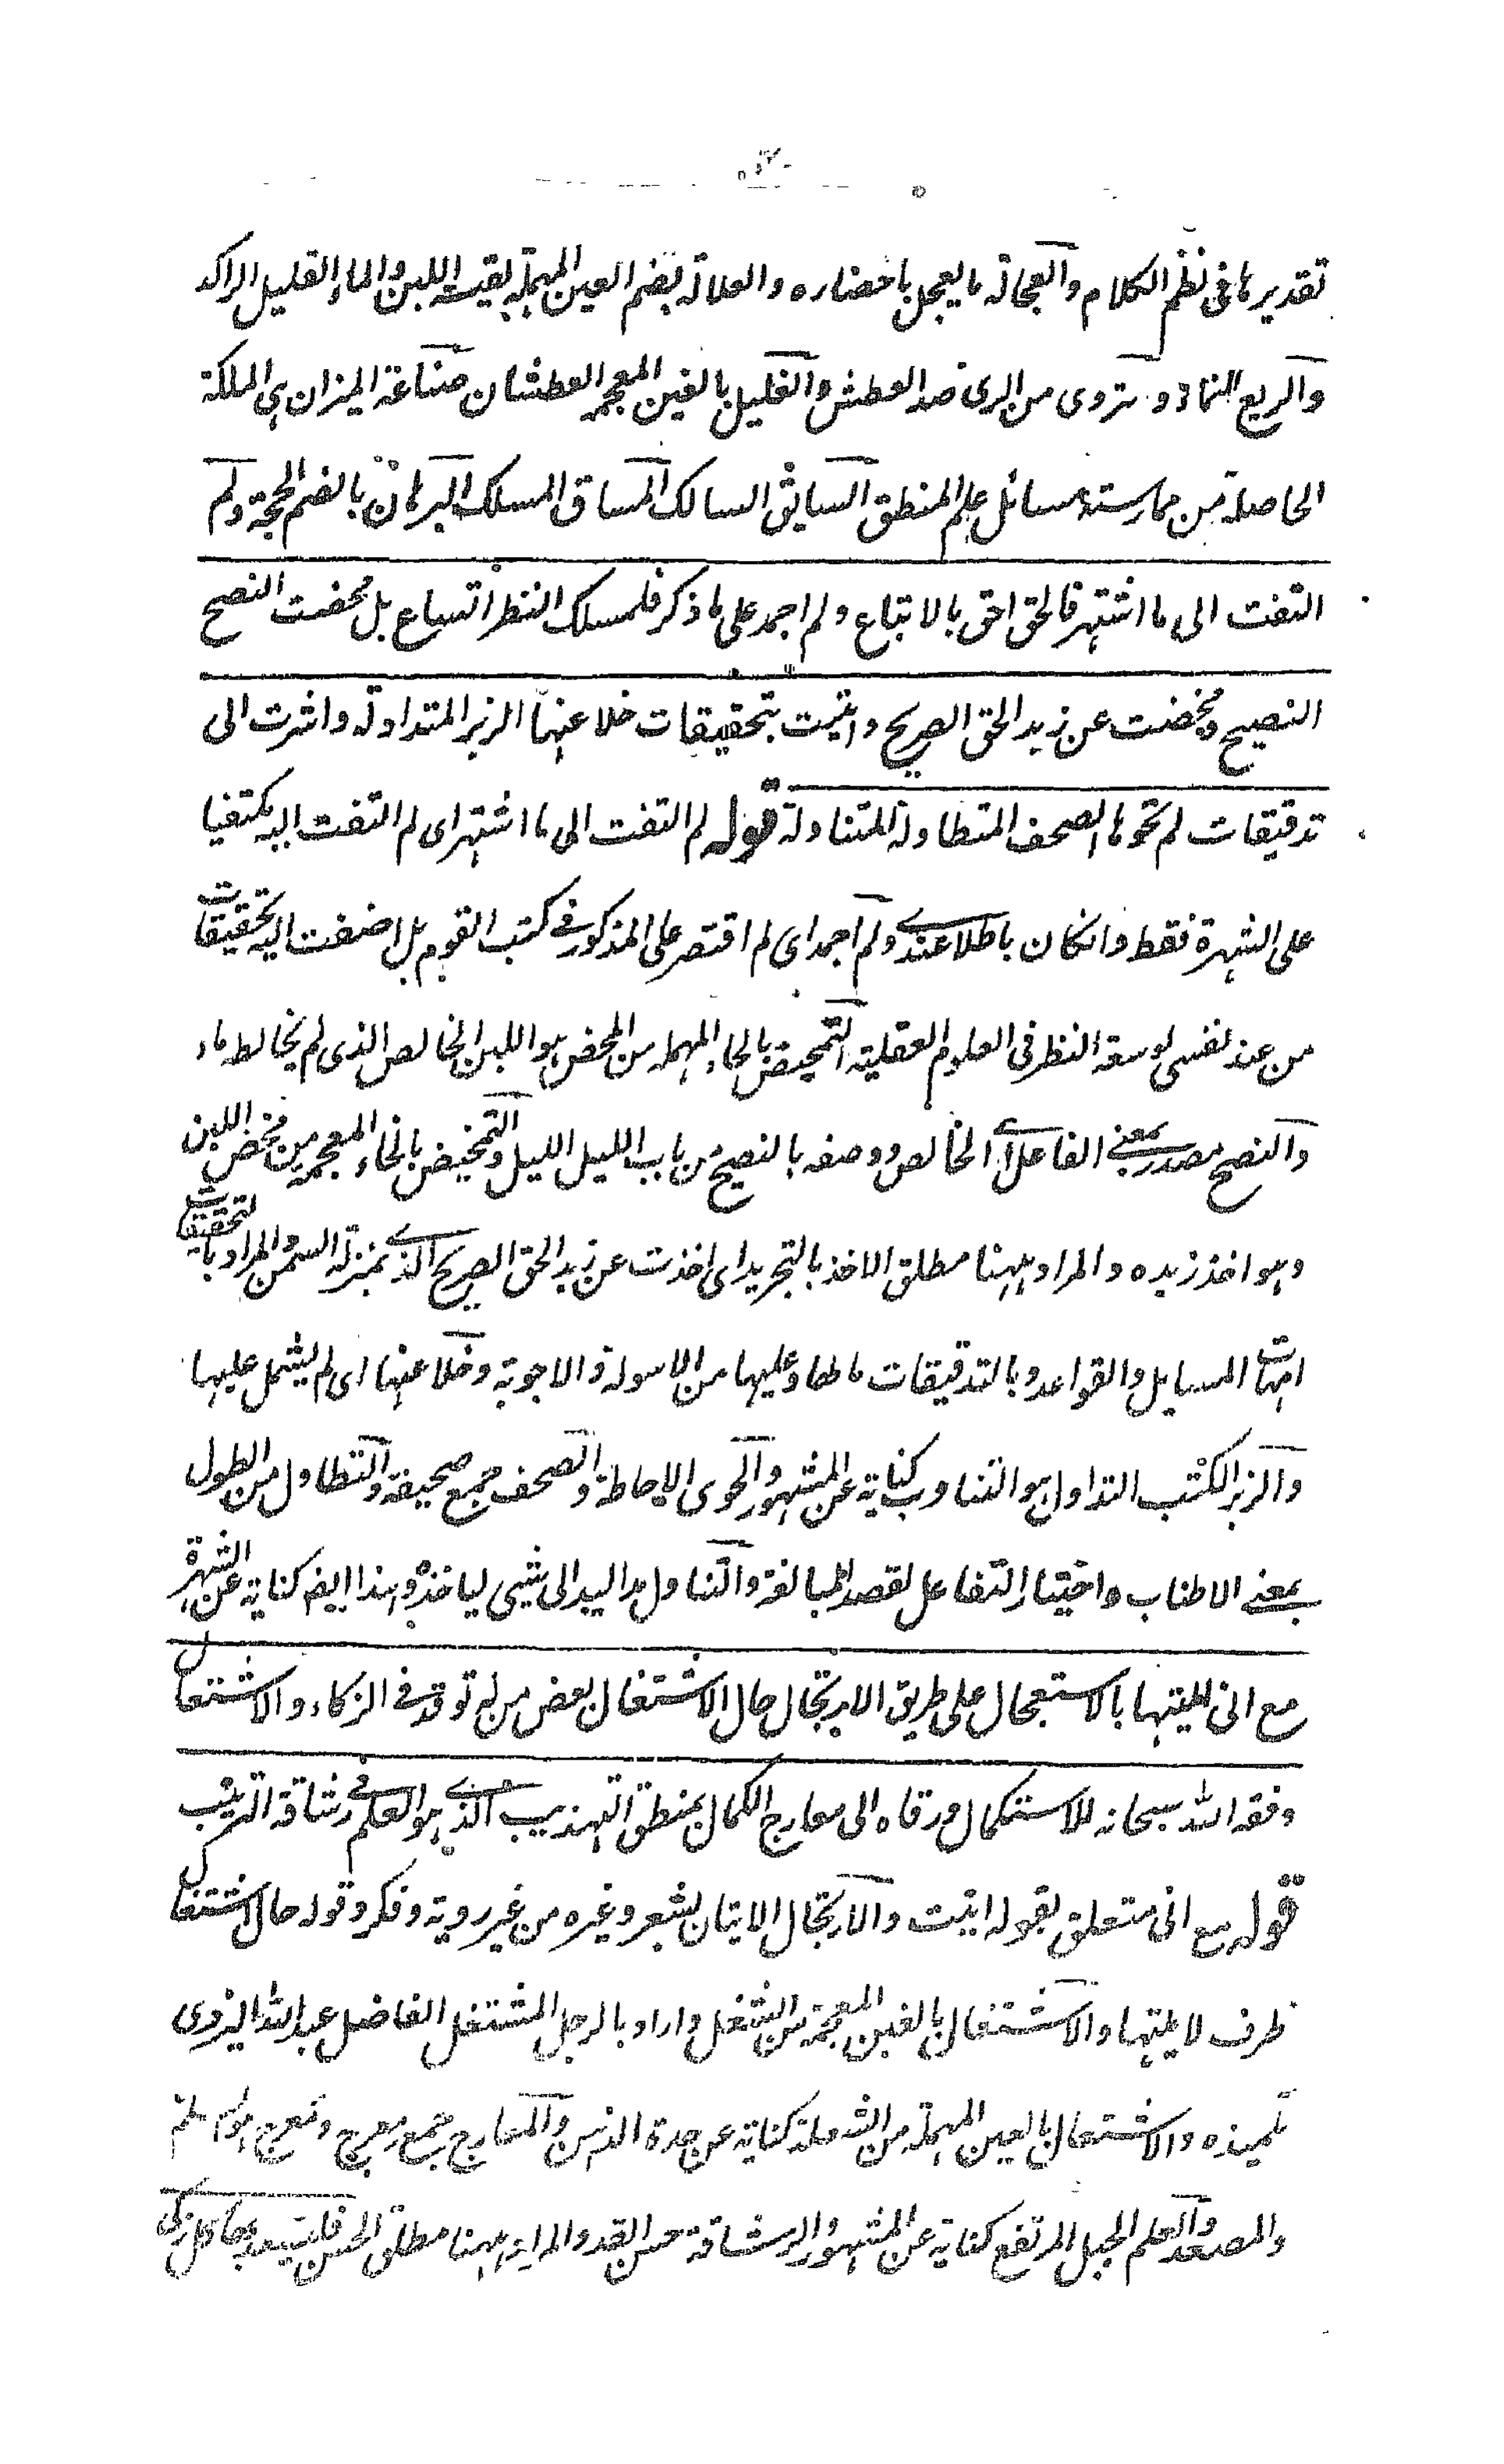 تقديرها فى نظم الكلام والعجالة ما يعجل باحضاره والعلالة بضم العين المهملة بقية اللبن والماء القليل الراكد
والريع النماء و تروى من الرى ضد العطش والغليل بالغين المعجمه العطشان صناعة الميزان هى الملكة
الحاصلة من ممارسته مسائل علم المنطق السايق السالك المساق المسلك البرهان بالضم الحجة ولم
التفت الى ما اشتهر فالحق احق بالاتباع ولم اجمد على ما ذكر فلمسلك النظر اتساع بل محضت النصح
النصيح ومخضت عن زبد الحق الصريح واتيت بتحقيقات خلا عنها الزبر المتداولة واشرت الى
تدقيقات لم تحوها الصحف المتطاولة المتناولة قوله لم التفت الى ما اشتهر اى لم التفت اليه مكتفيا
على الشهرة فقط وانكان باطلا عندے ولم اجمد اى لم اقتصر على المذكور فى كتب القوم بل اضفت اليه تحقيقات
من عند نفسى لوسعة النظر فى العلوم العقلية التمحيض بالحاء المهمله من المحض هو اللبن الخالص الذى لم يخالط ماء
والنصح مصدر بمعنے الفاعل اے الخالص ووصفه بالنصيح من باب الليل الليل والتمخيض بالخاء المعجمه من مخض اللبن
وهو اخذ زبده والمراد ههنا مطلق الاخذ بالتجريد اى اخذت عن زبد الحق الصريح الذے بمنزلة السمن والمراد بالتحقيقات
امهات المسايل والقواعد وبالتدقيقات ما طها وعليها من الاسولة والاجوبة وخلا عنها اى لم يشمل عليها
والزبر الكتب التداول هو التناوب كناية عن المشهور والحوى الاحاطة والصحف جمع صحيفة والتطاول من الطول
بمعنے الاطناب واختيار التفاعل لقصد المبالغة والتناول مد اليد الى شيى لياخذه وهذا ايضا كناية عن الشهرة
مع انى امليتها بالاستعجال على طريق الارتجال حال الاشتغال بعض من له توقد فى الزكاء والاشتعال
وفقه الله سبحانه للاستكمال ورقاه الى معارج الكمال بمنطق التهذيب الذے هو العلم فے رشاقة الترتيب
قوله مع انى متعلق بقوله اتيت والارتجال الاتيان بشعر وغيره من غير روية وفكر وقوله حال الاشتغال
ظرف لامليتها والاشتغال بالغين المعجمة من الشغل واراد بالرجل المشتغل الفاضل عبد الله اليزدى
تلميذه والاشتعال بالعين المهملة من الشعلة كناية عن حدة الذهن والمعارج جمع معرج ومعرج هو السلم
والمصعد والعلم الجبل المرتفع كناية عن المشهور والرشاقة حسن القد والمراد ههنا مطلق الحسن